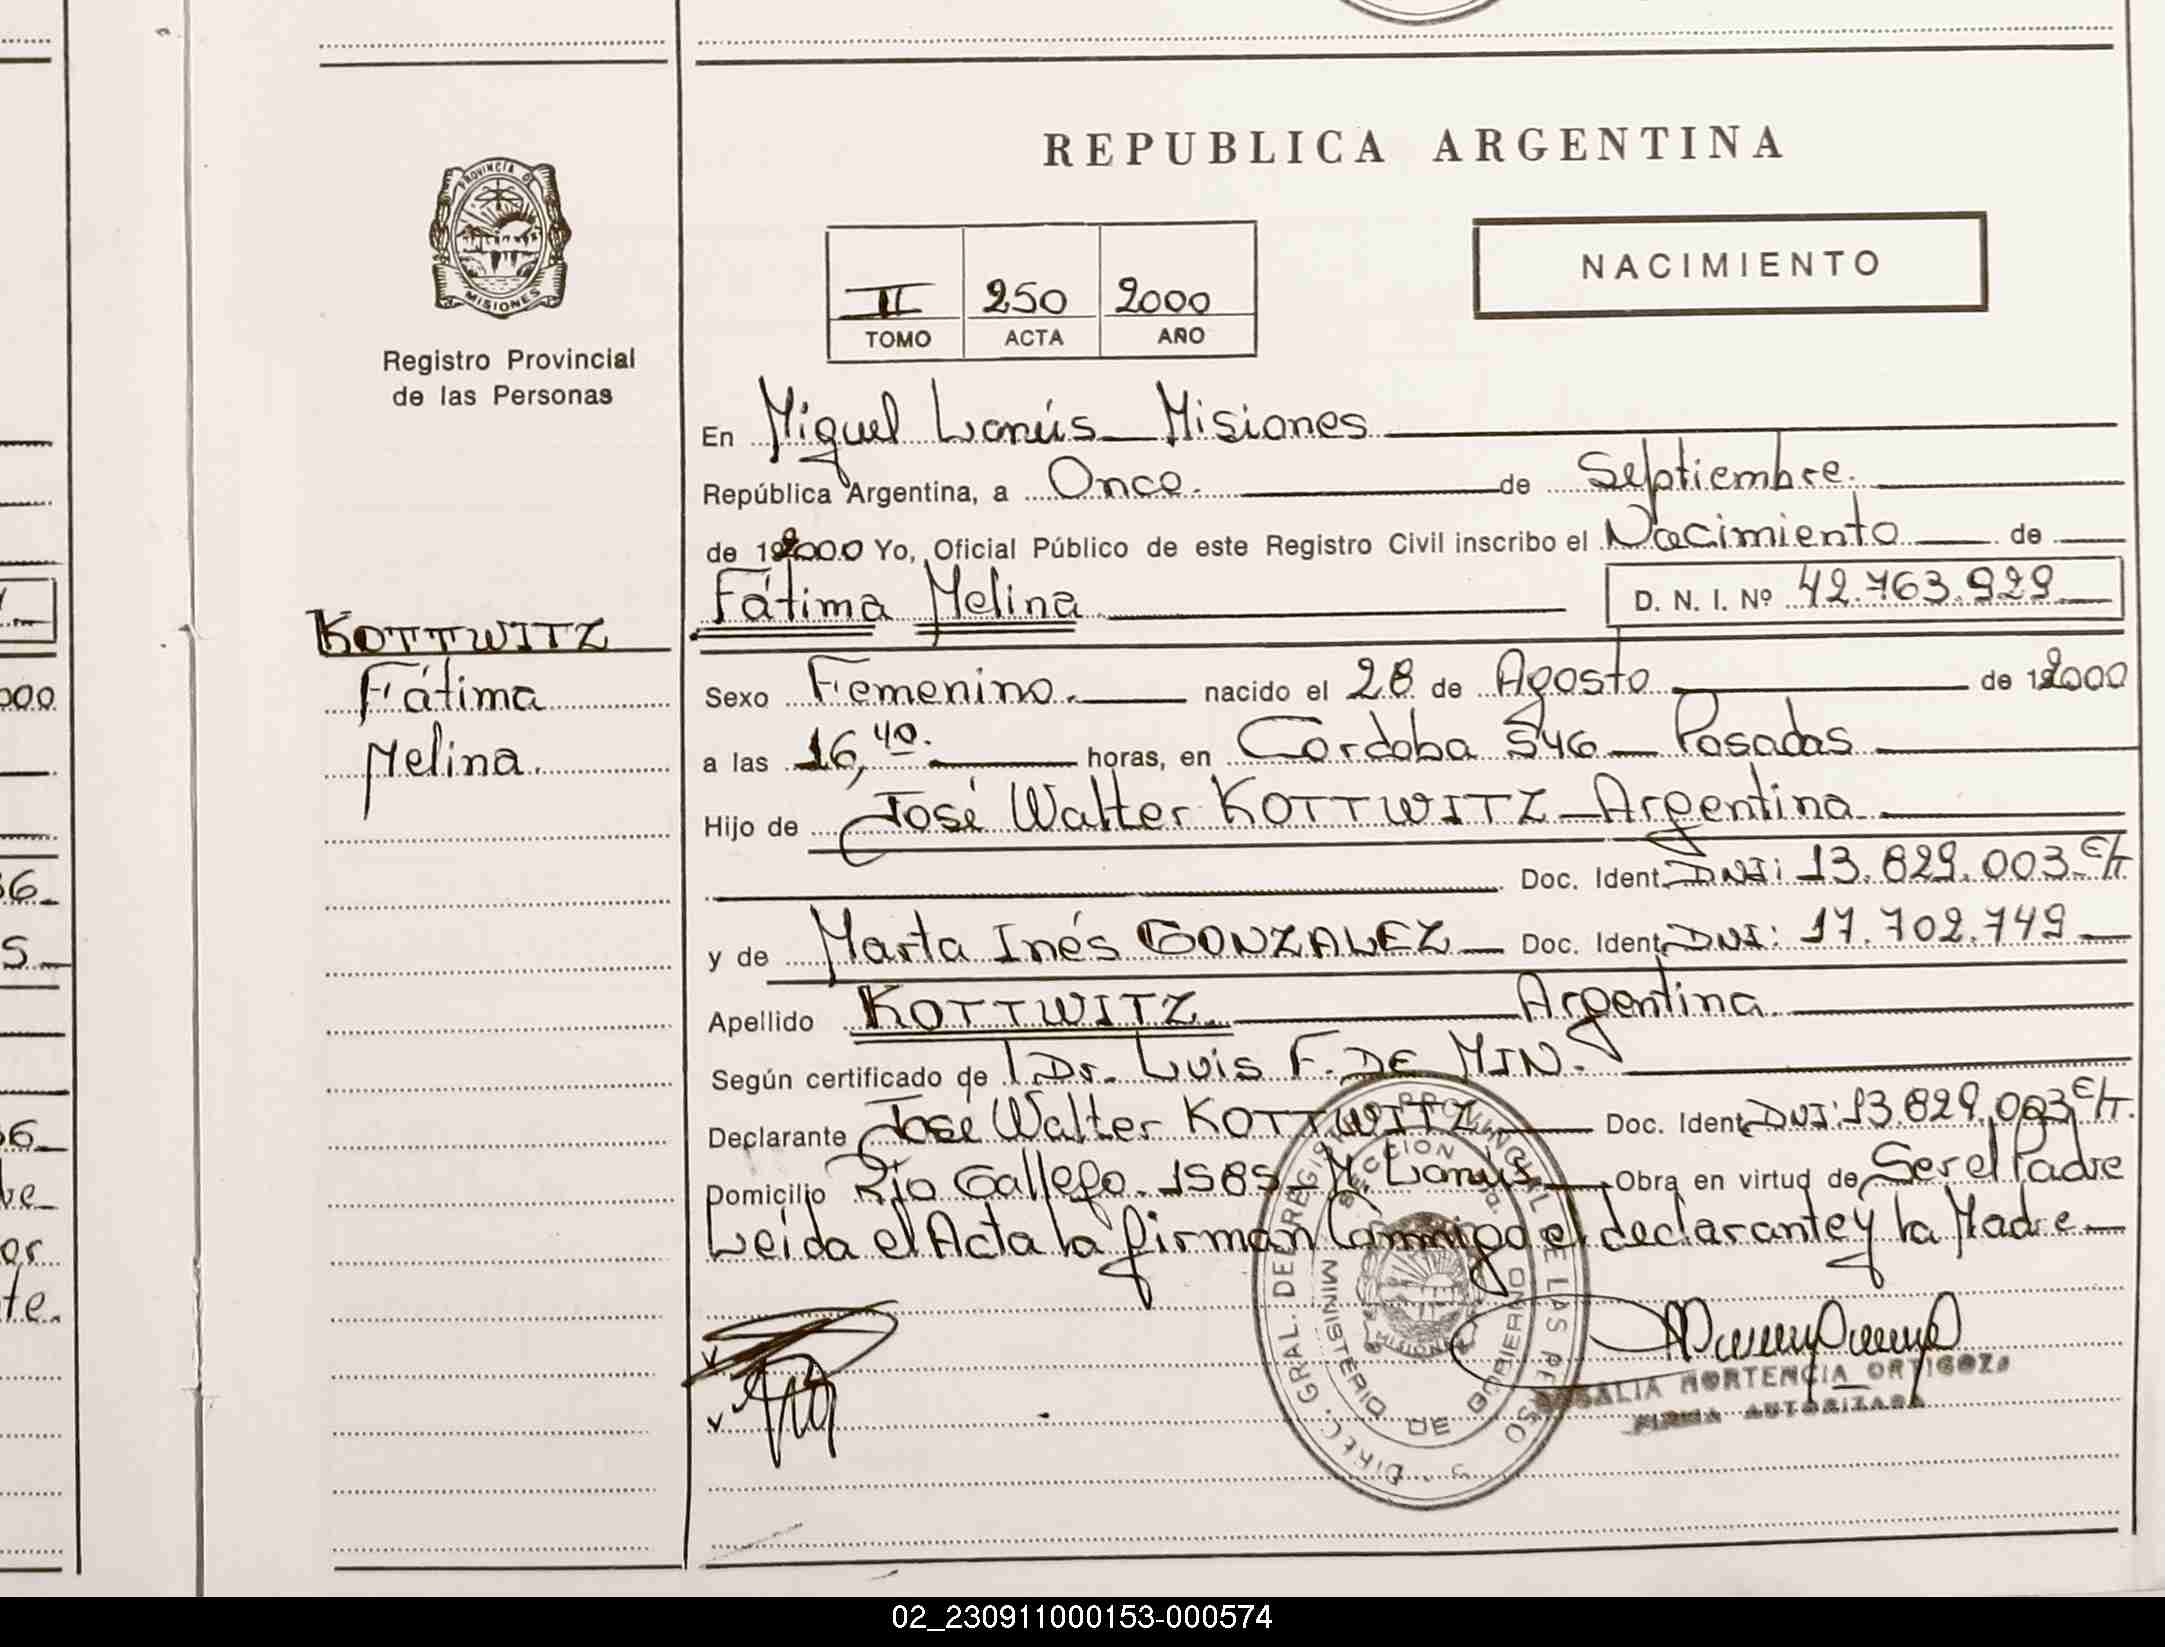 REPUBLICA ARGENTINA
PROVINCIA DE
MISIONES
Registro Provincial
de las Personas
NACIMIENTO
II 250 2000
TOMO ACTA AÑO
En Miguel Lanús Misiones
República Argentina, a Once. de Septiembre.
de 2000 Yo, Oficial Público de este Registro Civil inscribo el Nacimiento de
Fátima Melina D. N. I. Nº 42.763.929
KOTTWITZ
Fátima
Melina.
Sexo Femenino. nacido el 28 de Agosto de 2000
a las 16,40. horas, en Córdoba 546 Posadas
Hijo de José Walter KOTTWITZ Argentina
Doc. Ident. DNI: 13.829.003 E/T
y de Marta Inés GONZALEZ Doc. Ident. DNI: 17.702.749
Apellido KOTTWITZ. Argentina
Según certificado de Dr. Luis F. DE MIN.
Declarante José Walter KOTTWITZ Doc. Ident. DNI: 13.829.003 E/T.
Domicilio Río Gallego 1585 M. Lanús Obra en virtud de Ser el Padre
Leída el Acta la firman Conmigo el declarante y la Madre
DIREC. GRAL. DEL REGISTRO PROVINCIAL DE LAS PERSO
MINISTERIO DE GOBIERNO
ROSALIA HORTENCIA ORTIGOZA
FIRMA AUTORIZADA
02_230911000153-000574